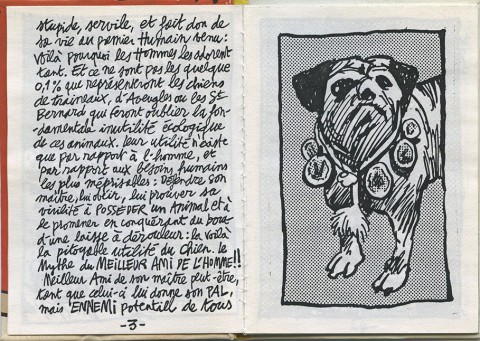 stupide, servile, et fait don de
sa vie au premier Humain venu:
Voilà pourquoi les Hommes les adorent
tant. Et ce ne sont pas les quelque
0,1% que représenteront les chiens
de traîneaux, d'Aveugles ou les St
Bernard qui feront oublier la fon-
damentale inutilité écologique
de ces animaux. leur utilité n'existe
que par rapport à l'homme, et
par rapport aux besoins humains
les plus méprisables: DÉfendre son
maître, lui obéir, lui prouver sa
virilité à POSSEDER un Animal et à
le promener en conquérant au bout
d'une laisse à dérouleur: la voilà
la pitoyable utilité du Chien. le
Mythe du MEILLEUR AMI DE L'HOMME!!
Meilleur Ami de son maître peut-être,
tant que celui-ci lui donne son PAL,
mais ENNEMI potentiel de tous
-3-